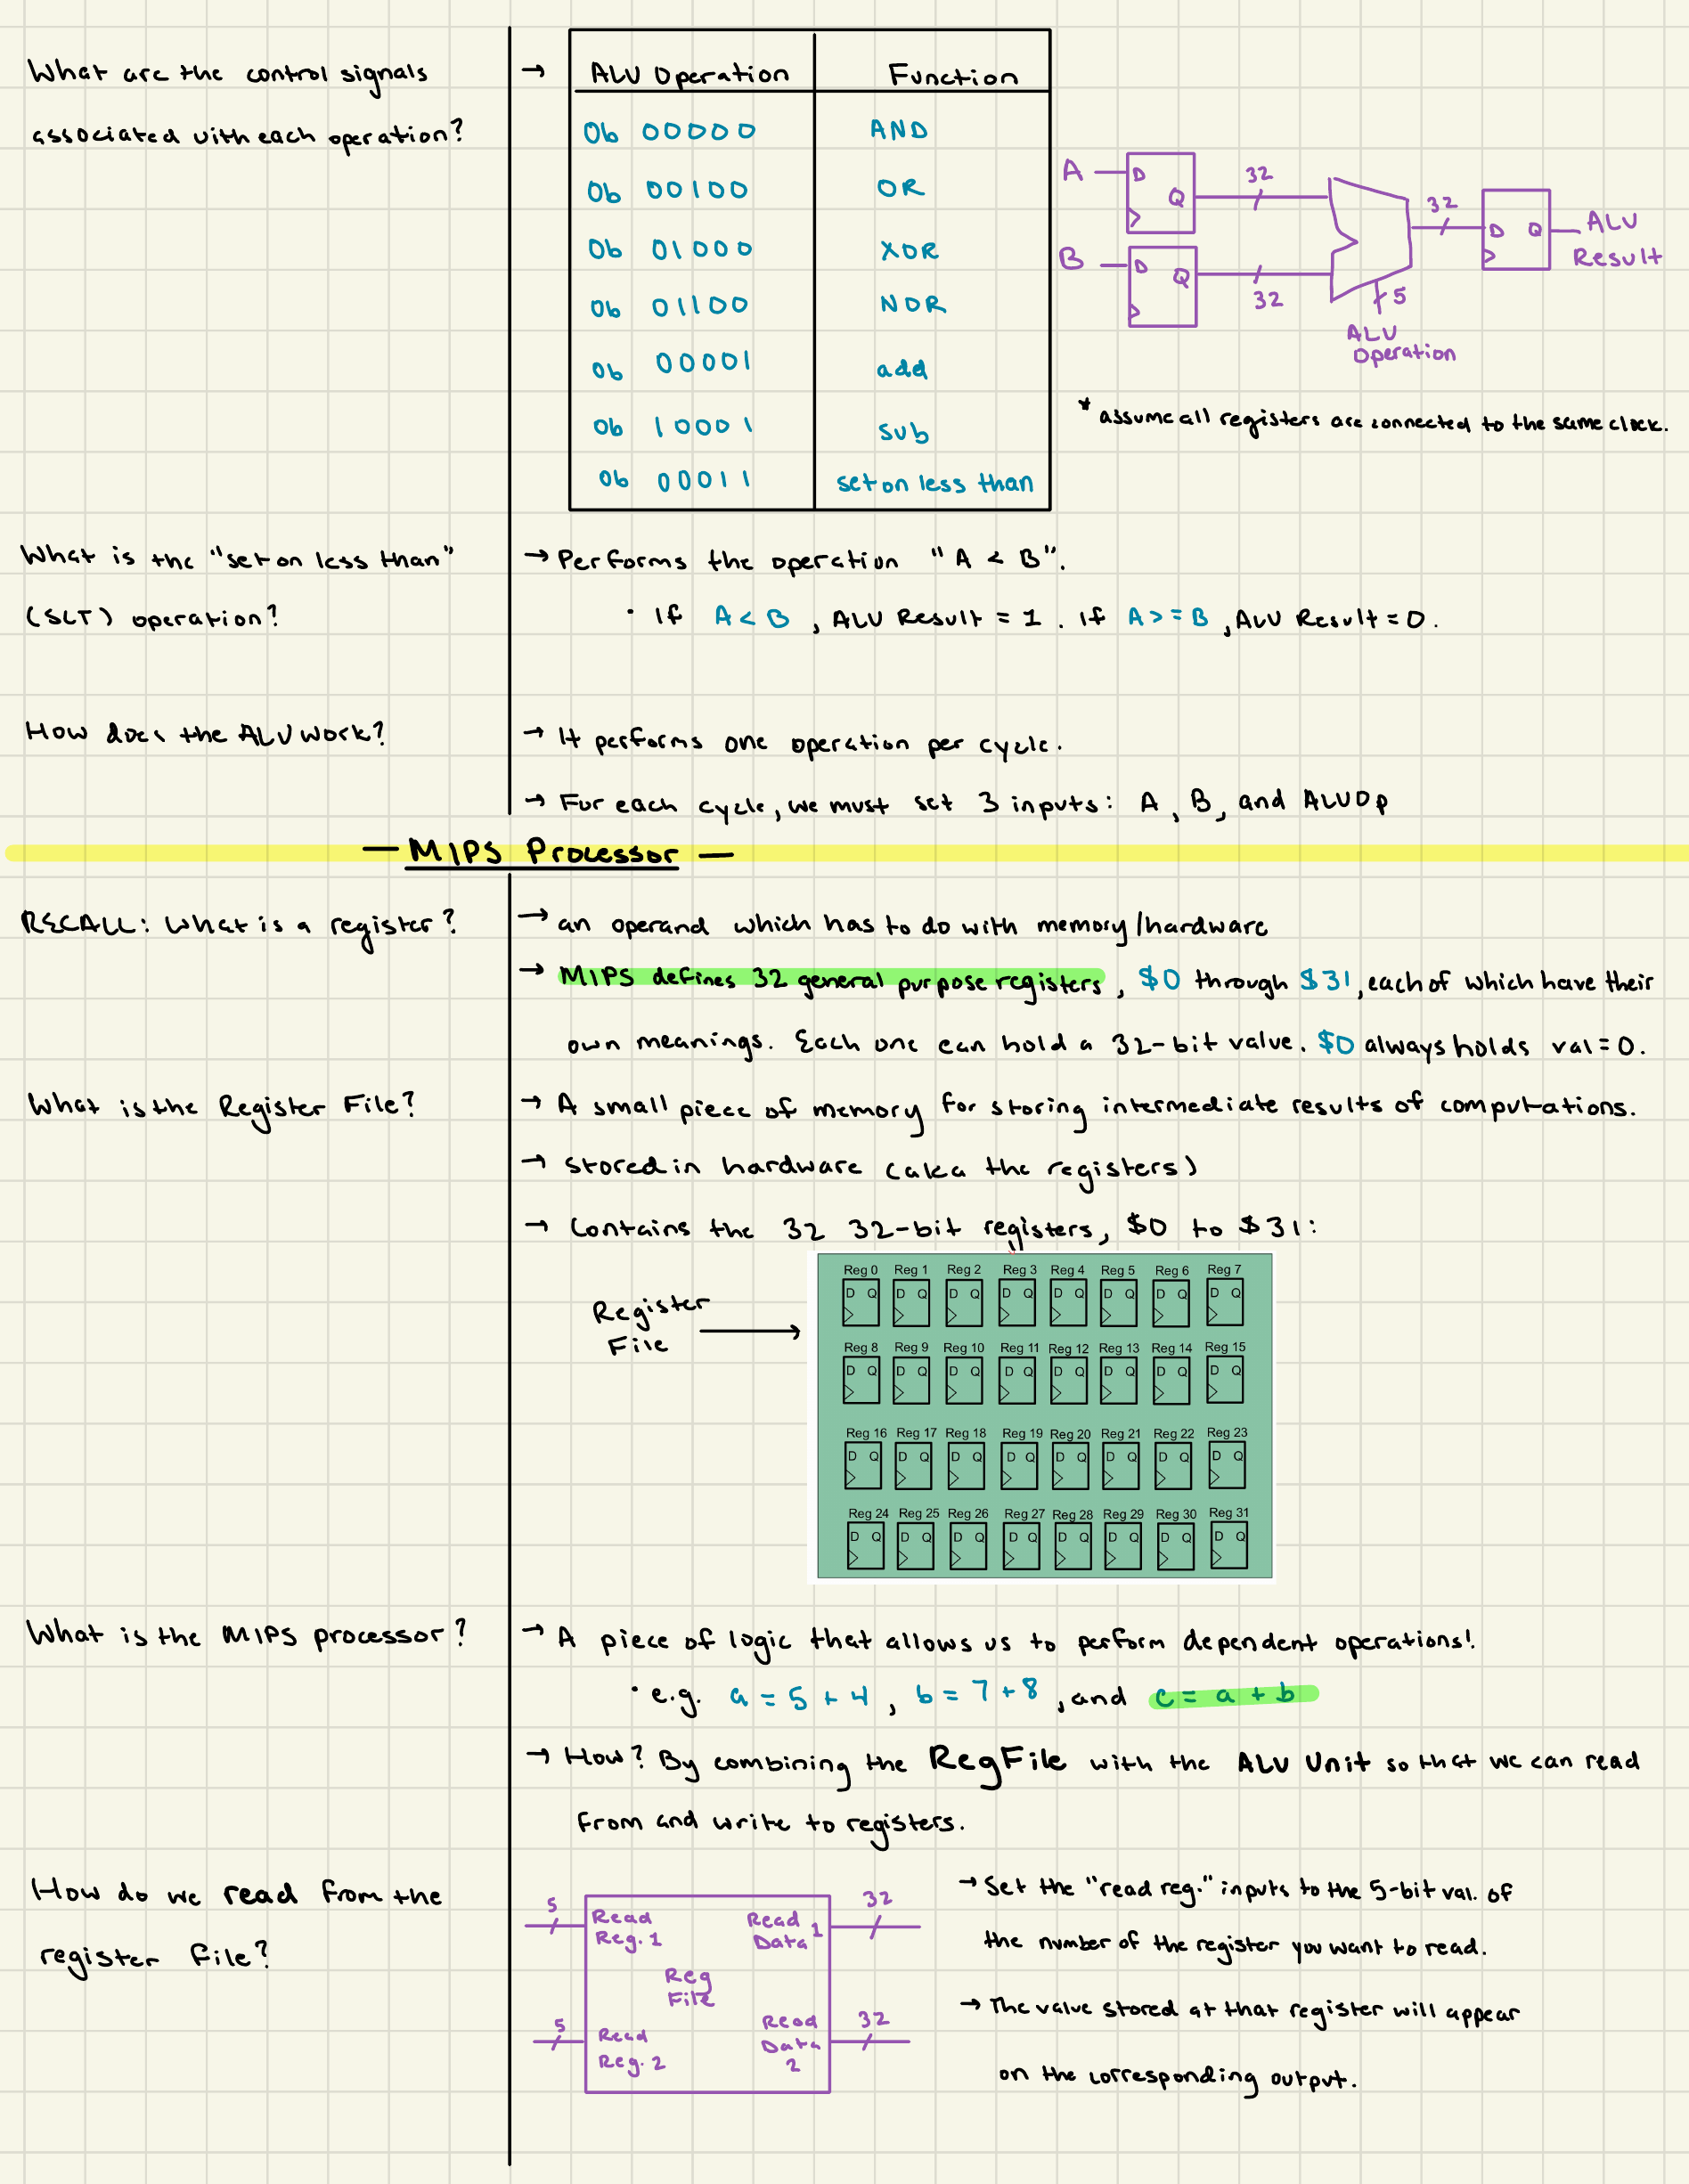 What are the control signals
associated with each operation?
→ ALU Operation Function
0b 00000 AND
0b 00100 OR
0b 01000 XOR
0b 01100 NOR
0b 00001 add
0b 10001 sub
0b 00011 set on less than
A D Q 32
B D Q 32
5
ALU
Operation
32 D Q ALU
Result
* assume all registers are connected to the same clock.
What is the "set on less than"
(SLT) operation?
→ Performs the operation "A < B".
• If A < B, ALU Result = 1. If A >= B, ALU Result = 0.
How does the ALU work?
→ It performs one operation per cycle.
→ For each cycle, we must set 3 inputs: A, B, and ALUOp
— MIPS Processor —
RECALL: What is a register?
→ an operand which has to do with memory/hardware
→ MIPS defines 32 general purpose registers, $0 through $31, each of which have their
own meanings. Each one can hold a 32-bit value. $0 always holds val=0.
What is the Register File?
→ A small piece of memory for storing intermediate results of computations.
→ stored in hardware (aka the registers)
→ Contains the 32 32-bit registers, $0 to $31:
Register
File
Reg 0 Reg 1 Reg 2 Reg 3 Reg 4 Reg 5 Reg 6 Reg 7
D Q D Q D Q D Q D Q D Q D Q D Q
Reg 8 Reg 9 Reg 10 Reg 11 Reg 12 Reg 13 Reg 14 Reg 15
D Q D Q D Q D Q D Q D Q D Q D Q
Reg 16 Reg 17 Reg 18 Reg 19 Reg 20 Reg 21 Reg 22 Reg 23
D Q D Q D Q D Q D Q D Q D Q D Q
Reg 24 Reg 25 Reg 26 Reg 27 Reg 28 Reg 29 Reg 30 Reg 31
D Q D Q D Q D Q D Q D Q D Q D Q
What is the MIPS processor?
→ A piece of logic that allows us to perform dependent operations!
• e.g. a = 5 + 4, b = 7 + 8, and c = a + b
→ How? By combining the RegFile with the ALU Unit so that we can read
from and write to registers.
How do we read from the
register file?
5 Read
Reg. 1
Read 1
Data
32
Reg
File
5 Read
Reg. 2
Read
Data
2
32
→ Set the "read reg." inputs to the 5-bit val. of
the number of the register you want to read.
→ The value stored at that register will appear
on the corresponding output.